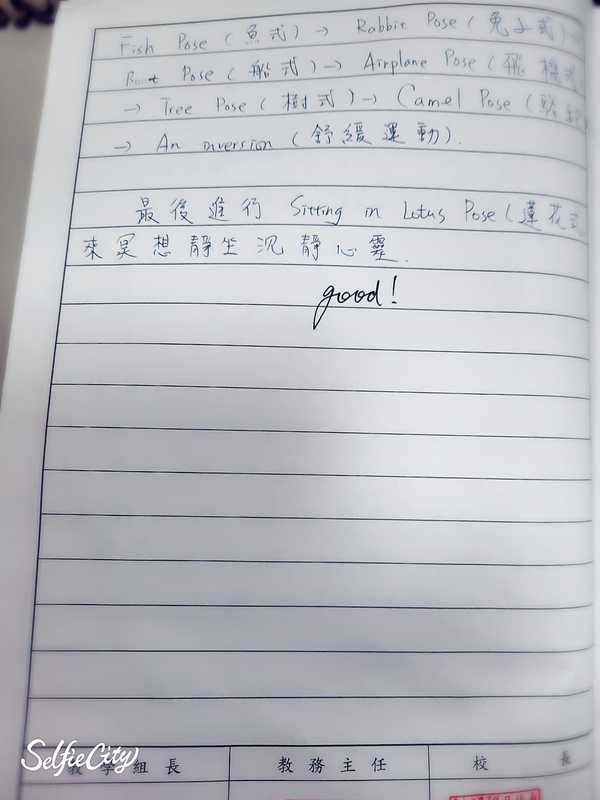 Fish Pose (魚式) → Rabbit Pose (兔子式) →
Pose (船式) → Airplane Pose (飛機式
→ Tree Pose (樹式) → Camel Pose (駱駝
→ An inversion (舒緩運動).
最後進行 Sitting in Lotus Pose (蓮花式
來冥想靜坐沉靜心靈.
good!
教學組長 教務主任 校長
SelfieCity